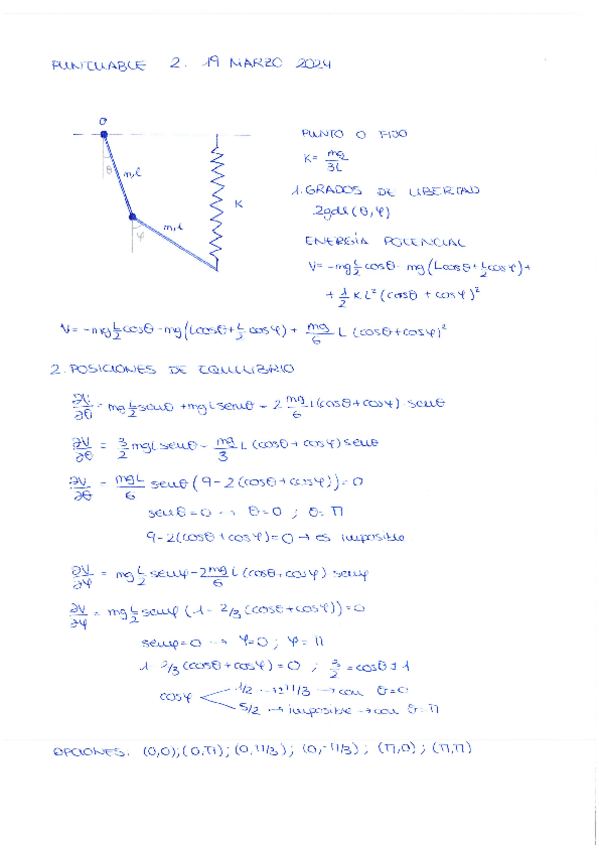 PUNTUABLE 2. 19 MARZO 2024
O
θ
m,L
K
m,L
φ
PUNTO O FIJO
K = mg/3L
1. GRADOS DE LIBERTAD
2gdl (θ,φ)
ENERGÍA POTENCIAL
V = -mg L/2 cosθ - mg (Lcosθ + L/2 cosφ) +
+ 1/2 K L² (cosθ + cosφ)²
V = -mg L/2 cosθ - mg (Lcosθ + L/2 cosφ) + mg/6 L (cosθ + cosφ)²
2. POSICIONES DE EQUILIBRIO
∂V/∂θ = mg L/2 senθ + mgL senθ - 2 mg/6 L (cosθ + cosφ) senθ
∂V/∂θ = 3/2 mgL senθ - mg/3 L (cosθ + cosφ) senθ
∂V/∂θ = mgL/6 senθ (9 - 2(cosθ + cosφ)) = 0
senθ = 0 → θ = 0 ; θ = π
9 - 2(cosθ + cosφ) = 0 → es imposible
∂V/∂φ = mg L/2 senφ - 2 mg/6 L (cosθ + cosφ) senφ
∂V/∂φ = mg L/2 senφ (1 - 2/3 (cosθ + cosφ)) = 0
senφ = 0 → φ = 0 ; φ = π
1 - 2/3 (cosθ + cosφ) = 0 ; 3/2 = cosθ ± 1
cosφ
1/2 → ±π/3 → con θ = 0
5/2 → imposible → con θ = π
OPCIONES: (0,0); (0,π); (0,π/3); (0,-π/3); (π,0); (π,π)